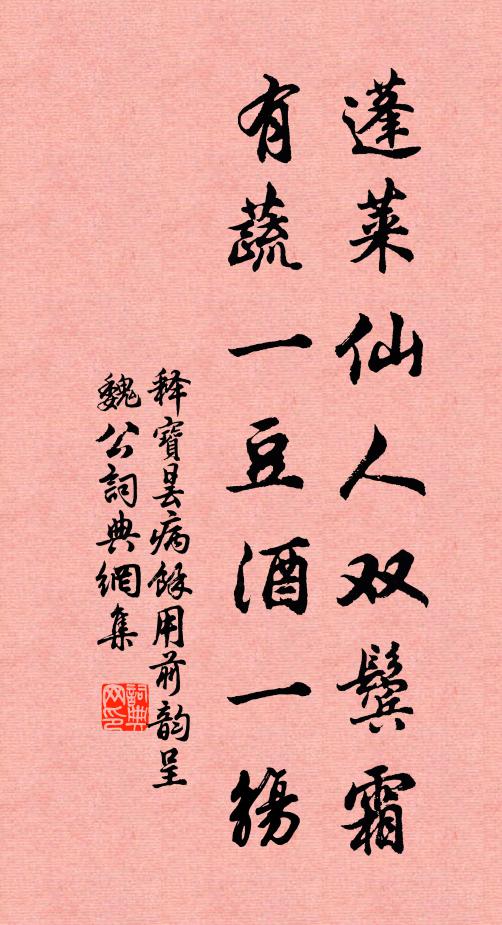 蓬莱仙人双鬓霜
有蔬一豆酒一觴
释寶昙病餘用前韵呈
魏公詞典網集
詞典
网印